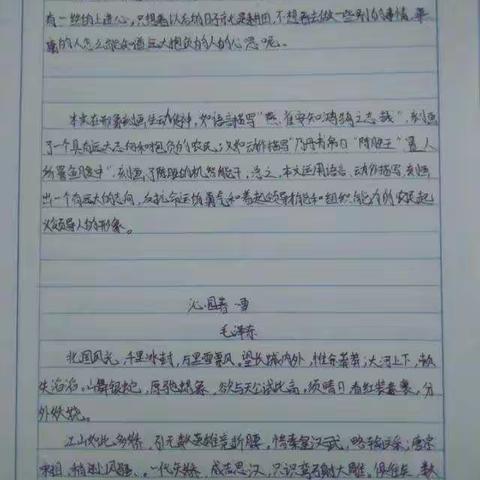 有一些的上进心,只想着以后的日子就是耕田,不想再去做一些别的事情,卑
庸的人怎么能知道远大抱负的人的心思呢。
本文在形象刻画生动传神,如语言描写"燕雀安知鸿鹄之志哉",刻画
了一个具有远大志向和抱负的农民;又如动作描写"乃丹书帛曰'陈胜王'置人
所罾鱼腹中",刻画了陈胜的机智能干,总之,本文运用语言,动作描写,刻画
出一个有远大的志向,反抗命运的勇气和着起领导才能和组织能力的农民起
义领导人的形象。
沁园春·雪
毛泽东
北国风光,千里冰封,万里雪飘。望长城内外,惟余莽莽;大河上下,顿
失滔滔。山舞银蛇,原驰蜡象,欲与天公试比高。须晴日,看红装素裹,分
外妖娆。
江山如此多娇,引无数英雄竞折腰。惜秦皇汉武,略输文采;唐宗
宋祖,稍逊风骚。一代天骄,成吉思汗,只识弯弓射大雕。俱往矣,数